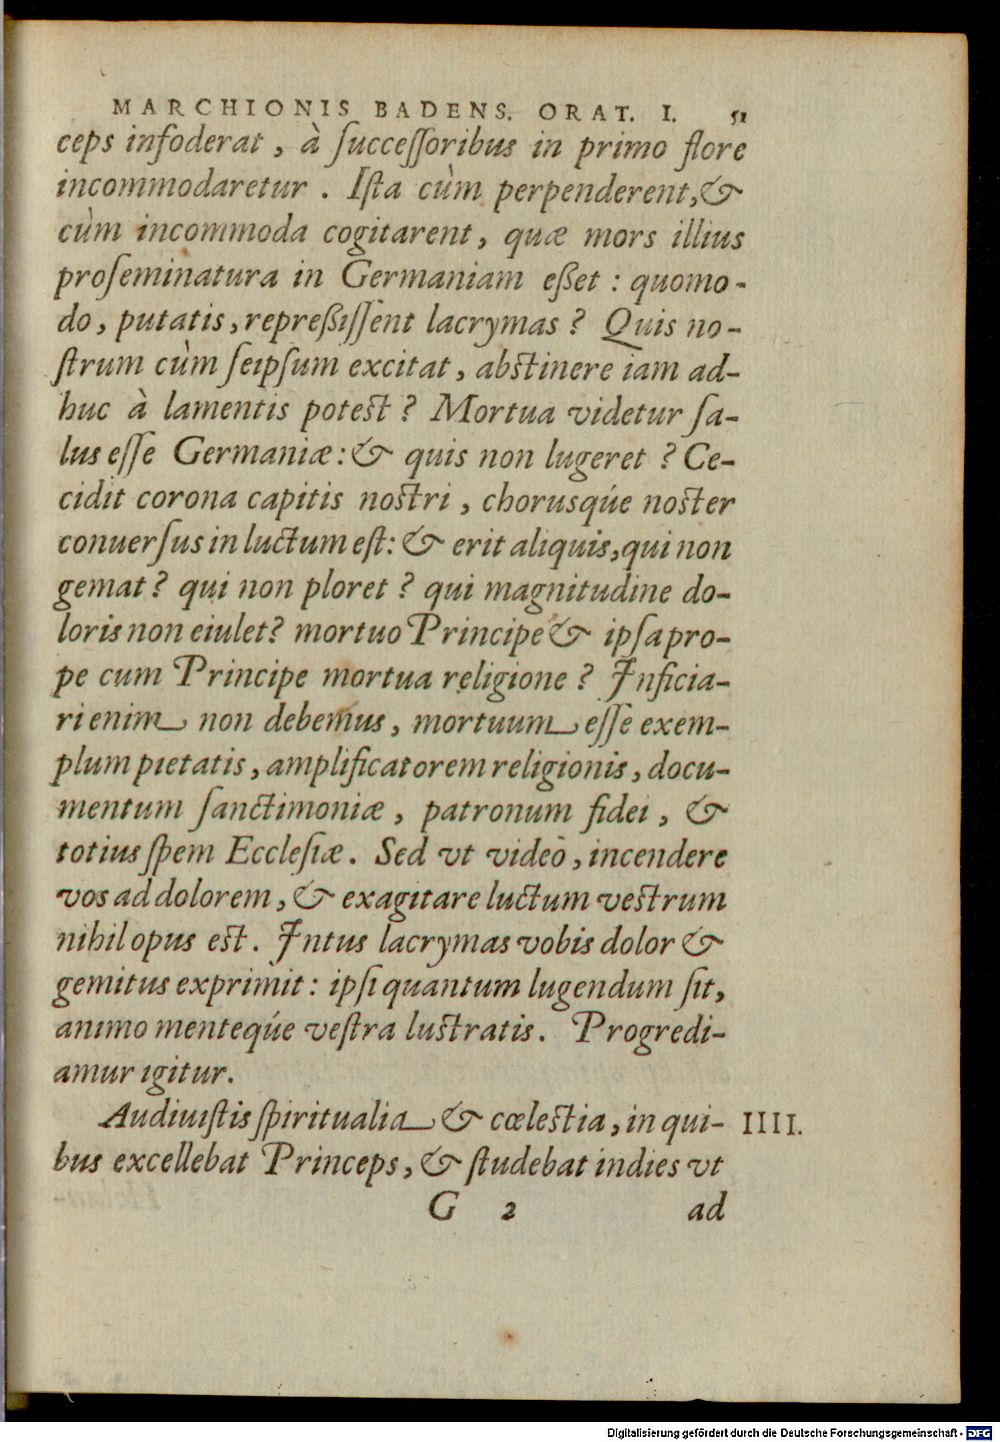 MARCHIONIS BADENS. ORAT. I. 51
ceps infoderat, à ſucceſſoribus in primo flore
incommodaretur. Iſta cùm perpenderent, &
cùm incommoda cogitarent, quæ mors illius
proſeminatura in Germaniam eßet: quomo-
do, putatis, repreßiſſent lacrymas? Quis no-
ſtrum cùm ſeipſum excitat, abstinere iam ad-
huc à lamentis potest? Mortua videtur ſa-
lus eſſe Germaniæ: & quis non lugeret? Ce-
cidit corona capitis nostri, chorusqúe noster
conuerſus in luctum eſt: & erit aliquis, qui non
gemat? qui non ploret? qui magnitudine do-
loris non eiulet? mortuo Principe & ipſa pro-
pe cum Principe mortua religione? Inficia-
ri enim non debemus, mortuum eſſe exem-
plum pietatis, amplificatorem religionis, docu-
mentum ſanctimoniæ, patronum fidei, &
totius ſpem Eccleſiæ. Sed vt videò, incendere
vos ad dolorem, & exagitare luctum vestrum
nihil opus est. Intus lacrymas vobis dolor &
gemitus exprimit: ipſi quantum lugendum ſit,
animo menteqúe veſtra lustratis. Progredi-
amur igitur.
Audiuiſtis ſpiritualia & cœlestia, in qui- IIII.
bus excellebat Princeps, & ſtudebat indies vt
G 2 ad
Digitalisierung gefördert durch die Deutsche Forschungsgemeinschaft - DFG